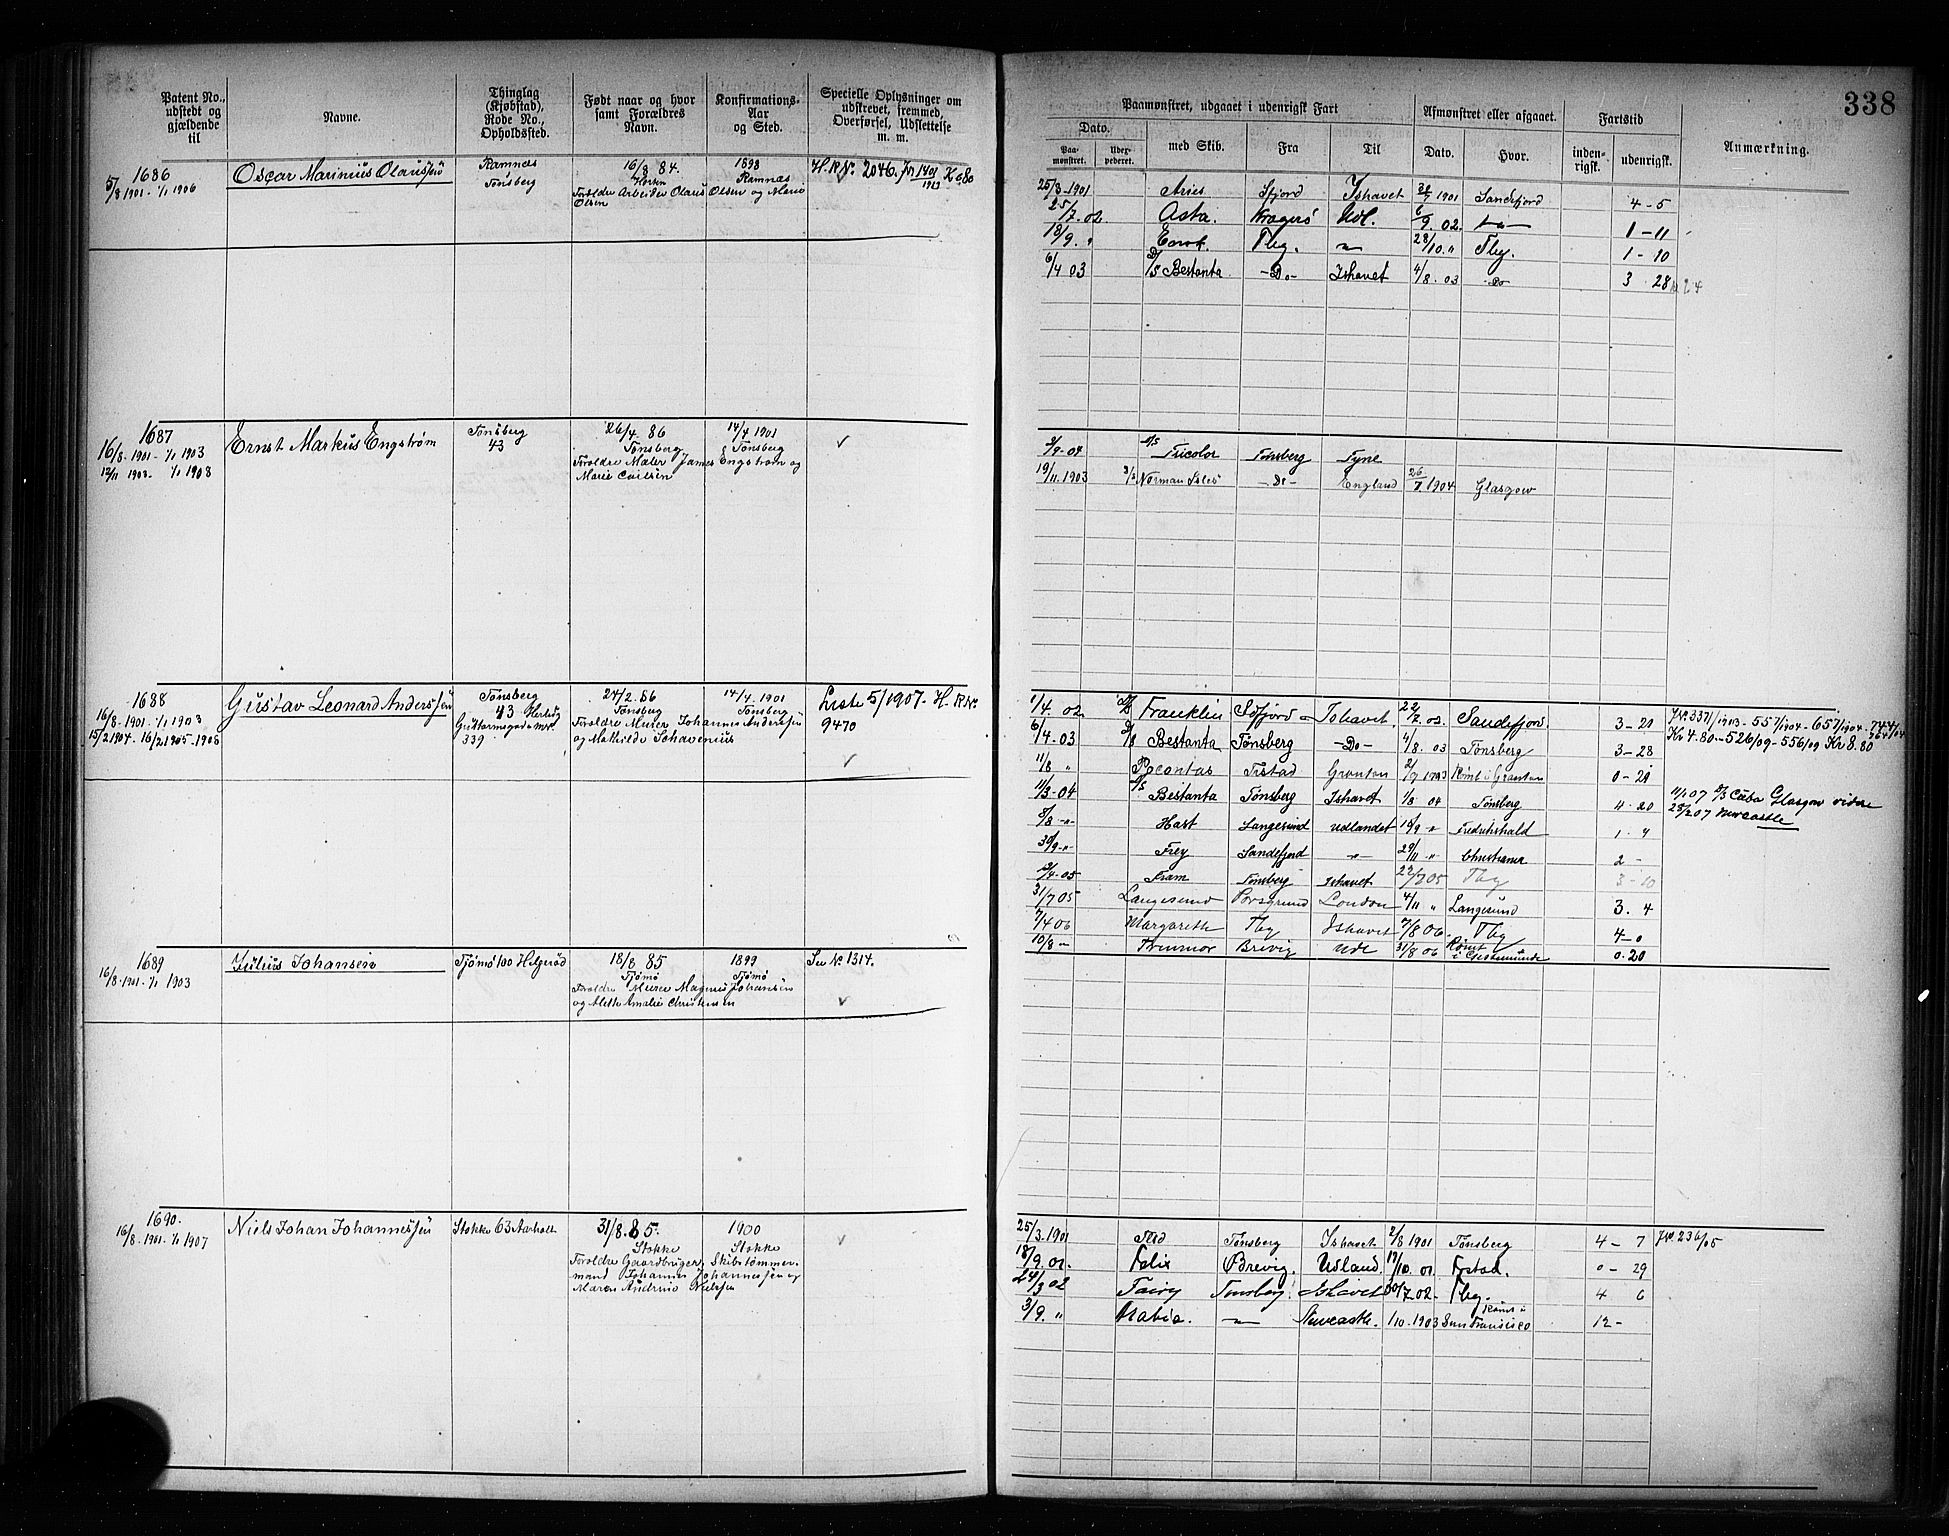 338
Patent No., udstedt og gjældende til
Navne.
Thinglag (Kjøbstad), Rode No., Opholdssted.
Født naar og hvor samt Forældres Navn.
Konfirmations-Aar og Sted.
Specielle Oplysninger om udskrevet, fremmed, Overførsel, Udslettelse m. m.
Paamønstret, udgaaet i udenrigsk Fart
Afmønstret eller afgaaet.
Fartstid
Anmærkning.
Dato.
Paa-mønstret.
med Skib.
Fra
Til
Dato.
Hvor.
inden-rigsk.
udenrigsk.
1686
5/8 1901 - 1/1 1906
Oscar Marinius Olaussen
Ramnæs
Tønsberg
16/8 84.
Forældre Arbeider Olaus Olsen og Maria
Olsen
1898
Ramnæs
H.R.Nr. 2046.
25/3-1901 Aries Sfjord Ishavet 1901 Sandefjord 4-5
25/7. 02. Asta. Kragerø Udl. 6/9. 02. 1-11
18/9. " Enok. Tbg. 28/10. " Tbg. 1-10
6/4 03 D/S Bestanta -Do- Ishavet 4/8. 03 Do 3 28
1687
16/8-1901-1/1 1903
12/11 1903-1/1 1908
Ernst Markus Engstrøm
Tønsberg
43
26/4. 86
Tønsberg
Forældre Maler James Engstrøm og
Marie Carlsen
14/4 1901
Tønsberg
✓
2/9-04 Tricolor Tønsberg Tyne
19/11.1903 Norman Isles -Do- England 26/7.1904 Glasgow
1688
16/8-1901-1/1 1903
15/2 1904-16/2 1905-1908
Gustav Leonard Anderssen
Tønsberg
43
339
24/2. 86
Tønsberg
Forældre Murer Johannes Anderssen
og Mathilde
14/4. 1901
Tønsberg
Liste 5/1907. H.R.Nr.
9470
✓
1/4. 02. Franklin Sfjord Ishavet 22/7. 02. Sandefjord 3-21
6/4.03 Bestanta Tønsberg -Do- 4/8. 03 Tønsberg 3-28
11/8 " Pocontas Tistad Granton Rømt i Granton 0-21
11/3-04 Bestanta Tønsberg Ishavet 1/8 04 Tønsberg 4-20
8/8 -"- Hast Langesund udlandet 12/9 " Fredrikshald 1. 4
30/9-"- Frey Sandefjord -"- 29/11 " Christiania 2 -
2/4-05 Fram Tønsberg Ishavet 22/7 05 Tbg 3-10
31/7 05 Langesund Porsgrund London 4/11 " Langesund 3. 4
7/4 06 Margareth Tbg Ishavet 7/8 06. Tbg 4-0
10/8 - Brevig Udl 31/8 06 Rømt i Geestemünde 0.20
JNo. 3371/1903-557/1904-657/1904-744/04
Kr 4.80.-526/09-556/09 Kr 8.80
11/1 07 Cuba Glasgow vidre
23/2 07 Newcastle
1689
16/8-1901-1/1 1903
Julius Johansen
Tjømø 100 Helgerød
18/8 85
Tjømø
Forældre Murer Magnus Johansen
og Mette Amalie Christensen
1899
Tjømø
Se No 1314.
✓
1690.
16/8-1901-1/1 1907
Niels Johan Johannessen
Stokke 63 Aarholt
31/8.85.
Stokke
Forældre Gaardbruger, Skibstømmer-
mand Johannes Johannessen og
Maren Andrine Nielsen
1900
Stokke
✓
25/3.1901 Fed Tønsberg Ishavet 2/8 1901 Tønsberg 4-7 JNo 236/05
18/9 01. Felix Brevig. Udland. 17/10. 01 Frstad. 0-29
24/3 02 Fairy Tønsberg Ishavet 30/7 02. Tbg. 4 6
3/9. " Arabia. -"- Newcastle. 1/10-1903 Rømt i San Fransisco 12-